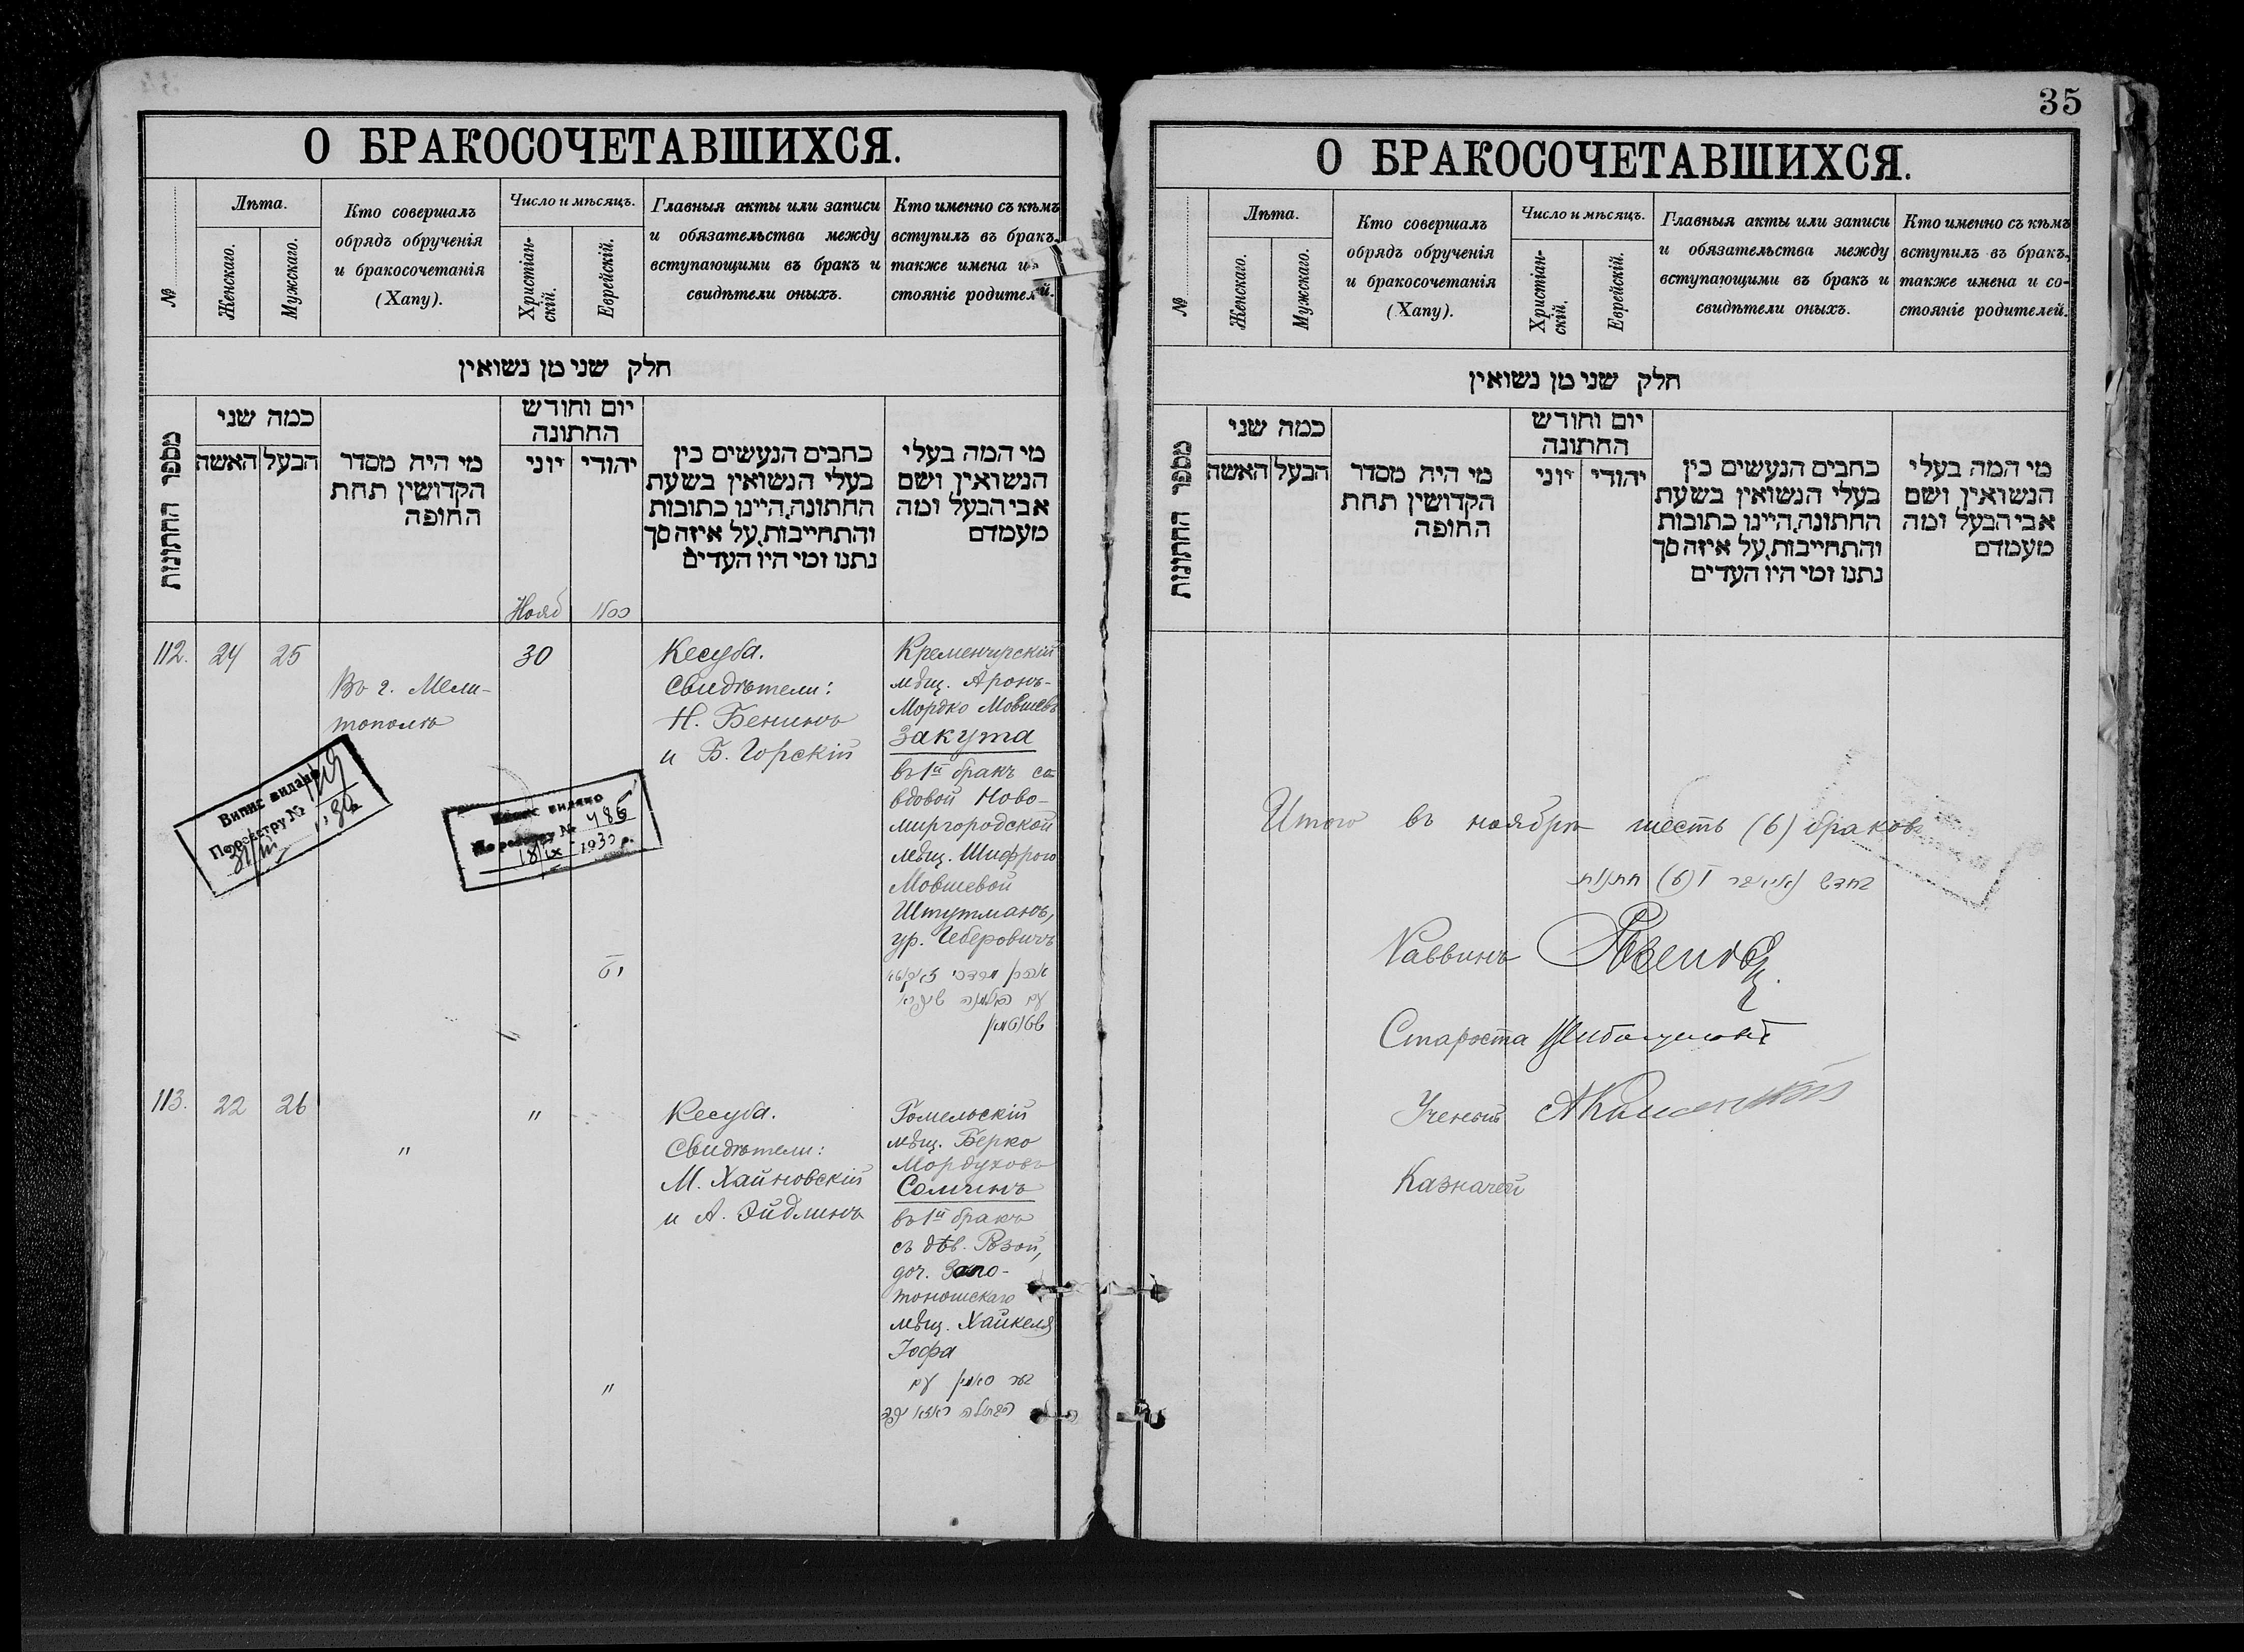 35
О БРАКОСОЧЕТАВШИХСЯ.
№
Лѣта.
Женскаго.
Мужскаго.
Кто совершалъ
обрядъ обрученія
и бракосочетанія
(Хапу).
Число и мѣсяцъ.
Христіан-
скій.
Еврейскій.
Главныя акты или записи
и обязательства между
вступающими въ бракъ и
свидѣтели оныхъ.
Кто именно съ кѣмъ
вступилъ въ бракъ,
также имена и
стояніе родителей.
חלק שני מן נשואין
מספר החתונות
כמה שני
האשה
הבעל
מי היה מסדר
הקדושין תחת
החופה
יום וחודש
החתונה
יוני
יהודי
כחבים הנעשים בין
בעלי הנשואין בשעת
החתונה, היינו כתובות
והתחייבות, על איזה סך
נתנו ומי היו העדים
מי המה בעלי
הנשואין ושם
אבי הבעל ומה
מעמדם
Нояб
כסלו
112.
24
25
Въ г. Мели-
тополѣ
30
יט
Кесуба.
Свидѣтели:
Н. Бенинъ
и Б. Горскій
Кременчугскій
мѣщ. Аронъ-
Мордко Мовшевъ
Закута
въ 1й бракъ со
вдовой Ново-
миргородской
мѣщ. Шифрою
Мовшевой
Штутманъ,
ур. Геберовичъ
אהרן מרדכי זאקוטא
עם האלמנה שיפרא
שטוטמאן
Випис видано
По реестру №
Випис видано
По реестру № 486
18/IX 1930 р.
113.
22
26
"
"
"
Кесуба.
Свидѣтели:
М. Хайновскій
и А. Эйдлинъ
Гомельскій
мѣщ. Берко
Мордуховъ
Сомкинъ
въ 1й бракъ
съ дѣв. Розой,
доч. Золо-
тоношскаго
мѣщ. Хайкеля
Іофа
עם
הבתולה ראזא יפה
О БРАКОСОЧЕТАВШИХСЯ.
№
Лѣта.
Женскаго.
Мужскаго.
Кто совершалъ
обрядъ обрученія
и бракосочетанія
(Хапу).
Число и мѣсяцъ.
Христіан-
скій.
Еврейскій.
Главныя акты или записи
и обязательства между
вступающими въ бракъ и
свидѣтели оныхъ.
Кто именно съ кѣмъ
вступилъ въ бракъ,
также имена и со-
стояніе родителей.
חלק שני מן נשואין
מספר החתונות
כמה שני
האשה
הבעל
מי היה מסדר
הקדושין תחת
החופה
יום וחודש
החתונה
יוני
יהודי
כחבים הנעשים בין
בעלי הנשואין בשעת
החתונה, היינו כתובות
והתחייבות, על איזה סך
נתנו ומי היו העדים
מי המה בעלי
הנשואין ושם
אבי הבעל ומה
מעמדם
Итого въ ноябрѣ шесть (6) браковъ
בחדש נאיאבר ו (6) חתנות
Раввинъ
Староста
Ученый
Казначей